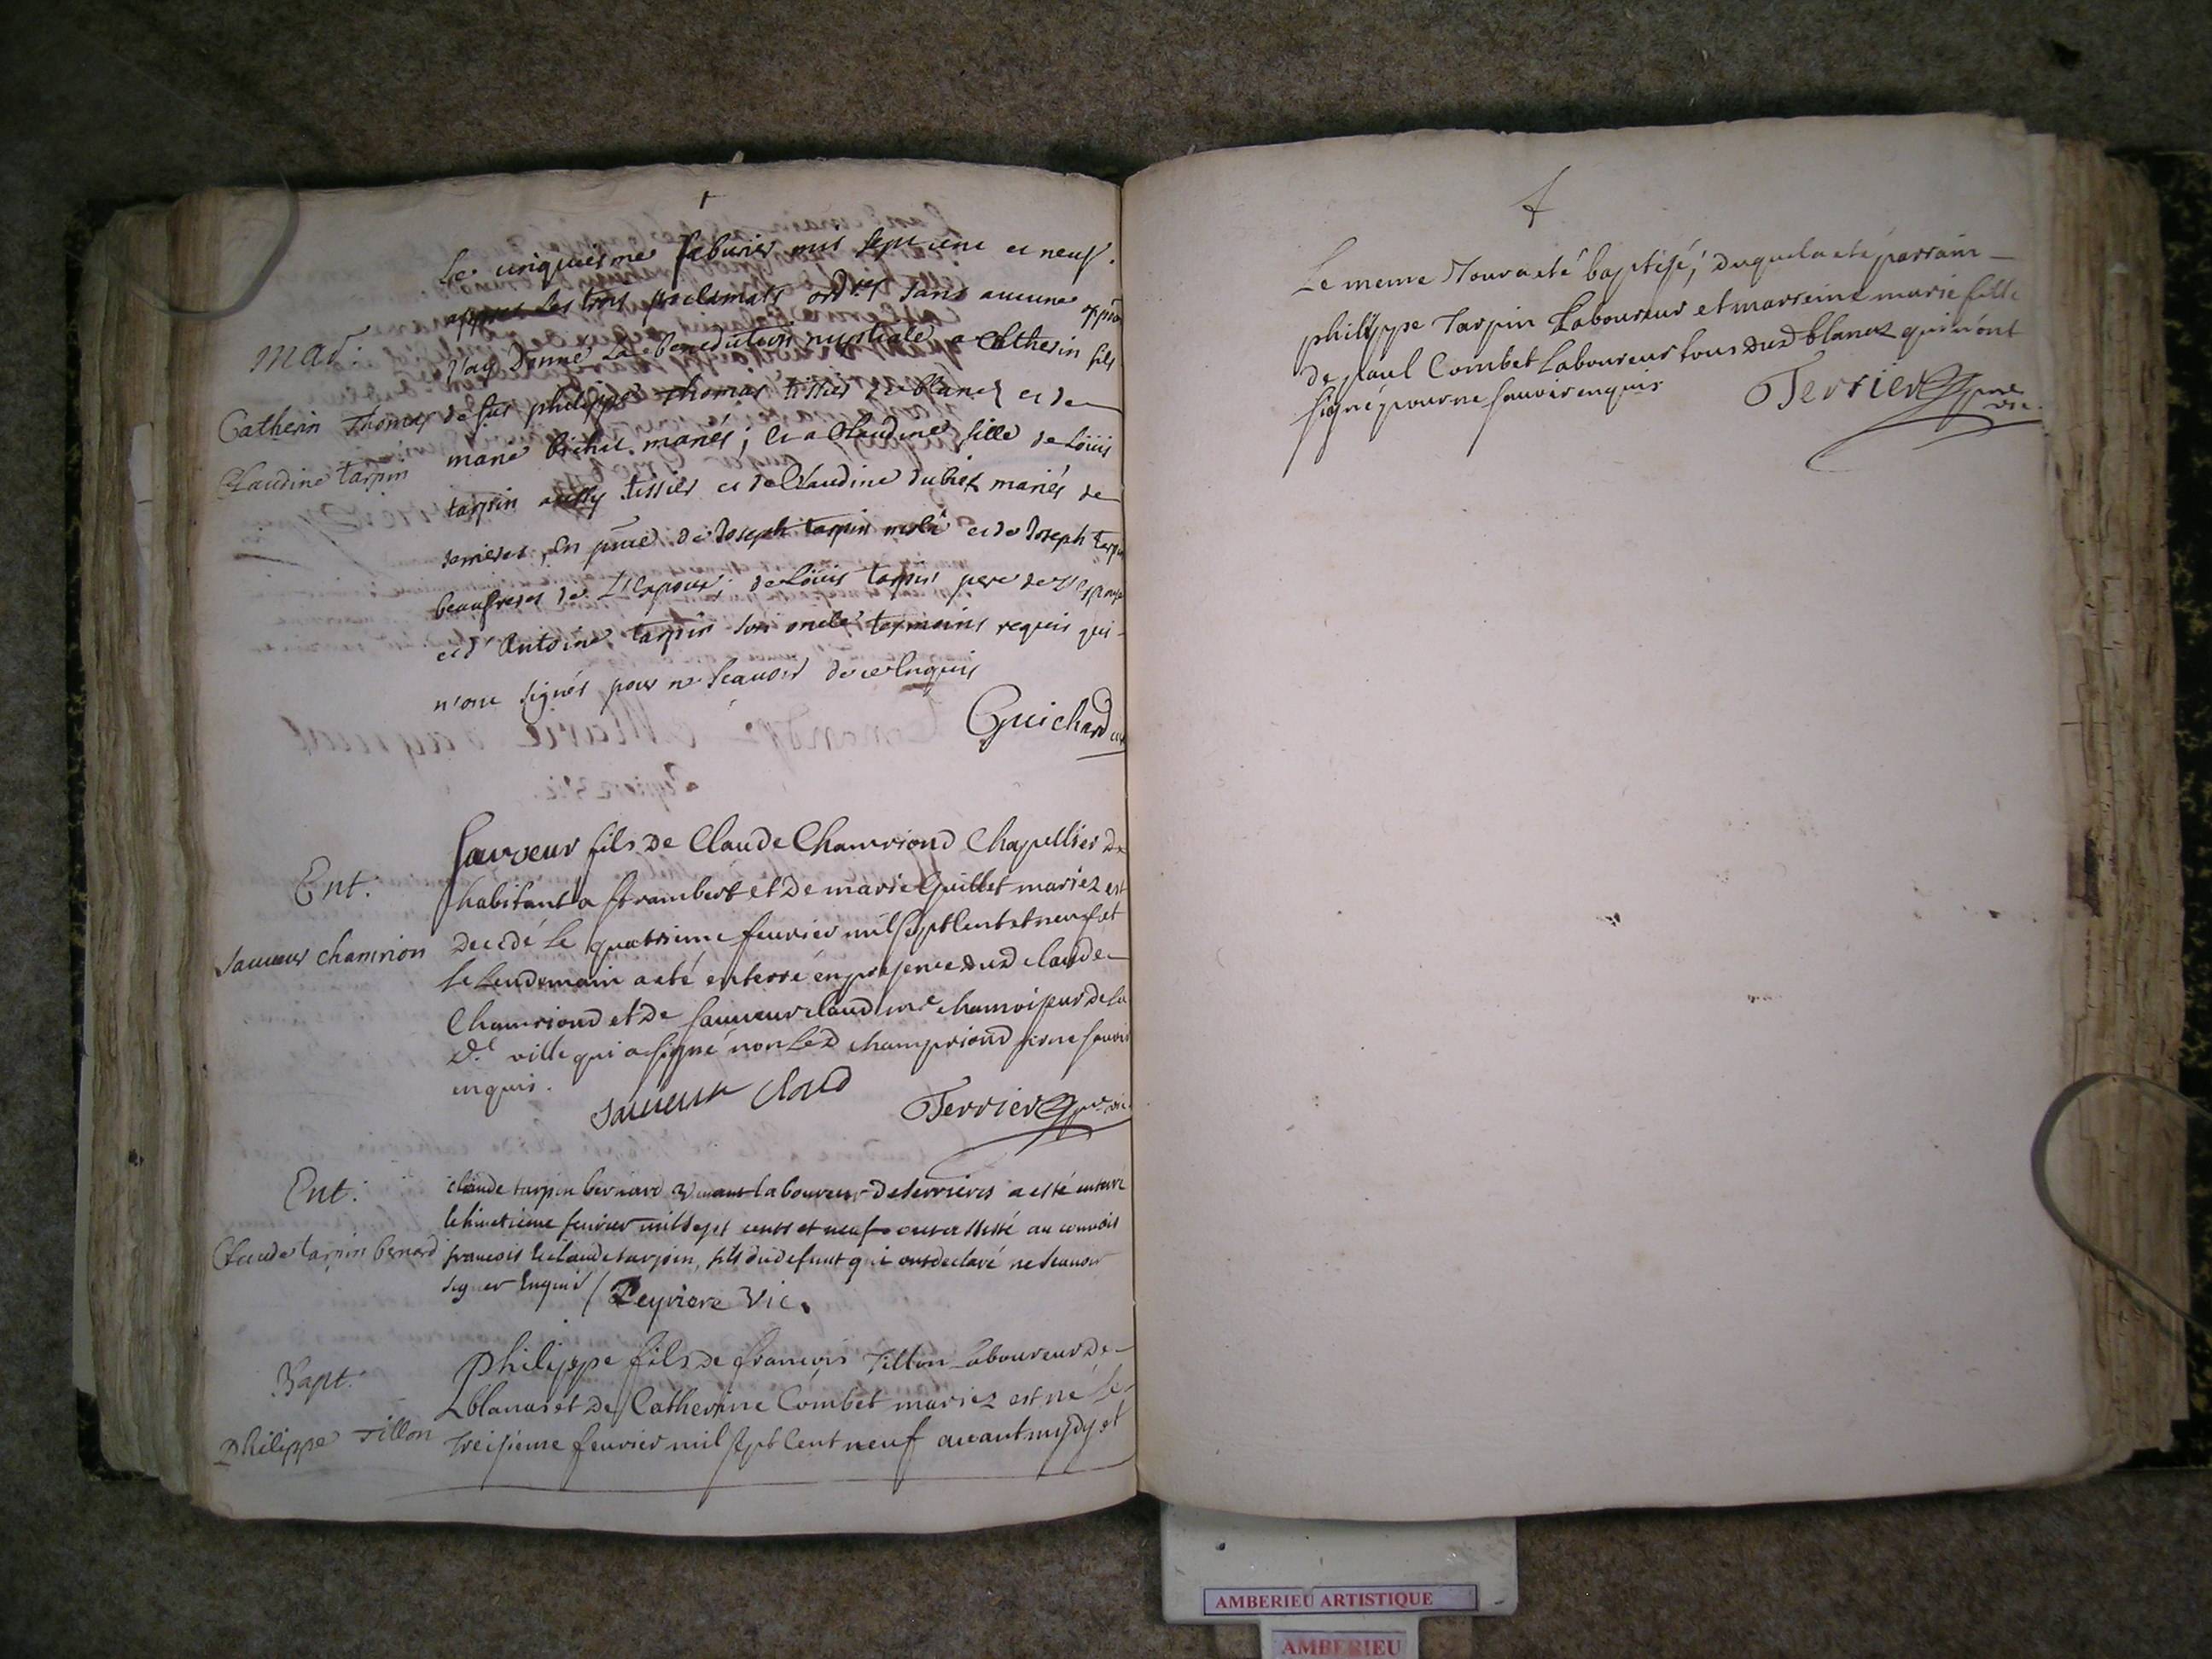 Le cinquiesme febvrier mil sept cent et neuf.
appres les trois proclamats ord.res sans aucune oppôn
J'ay donné La benediction nuptiale a Catherin fils
Mar:
Catherin Thomas
de feu philippe thomas tissier de blanaz et de
Claudine tarpin
marie bichet mariés; et a Claudine fille de Loüis
tarpin aussy tissier et de Claudine dubiez mariés de
serrieres, en pnce de Joseph tarpin et de Joseph tarpin
beaufreres de L'Expoux; de Loüis tarpin pere de L'Espouse
et d'Antoine tarpin son oncle tesmoins requis qui
n'ont signés pour ne scauoir de ce Enquis
Guichard
Ent:
Sauveur chamrion
Sauveur fils de Claude Chamriond Chapellier
habitant a st rambert et de marie Guillet mariez est
decedé le quatrieme feuvrier mil sept cent et neuf et
le lendemain a eté enterré en presence dud claude
Chamriond et de sauveur claud me chamoiseur de la
de ville qui a signé non led champriond pr ne savoir
enquis.
sauveur Claud
Terrier ptre vic.
Ent:
Claude tarpin bernard
claude tarpin bernard vivant laboureur de serrieres a esté enterré
le huictieme feuvrier mill sept cents et neuf ont assisté au convois
francois et claude tarpin, fils du defunt qui ont declaré ne scauoir
signer Enquis / Reyviere vic.
Bapt.
Philippe Tillon
Philippe fils de francois Tillon Laboureur de
blanas et de Catherine Combet mariez est né le
treisieme feuvrier mil sept cent neuf avant mydy et
Le meme Jour a eté baptisé, duquel a eté parrain
philippe Tarpin Laboureur et marreine marie fille
de paul Combet Laboureur tous dud blanaz qui n'ont
signé pour ne sauoir enquis
Terrier ptre
vic.
AMBERIEU ARTISTIQUE
AMBERIEU